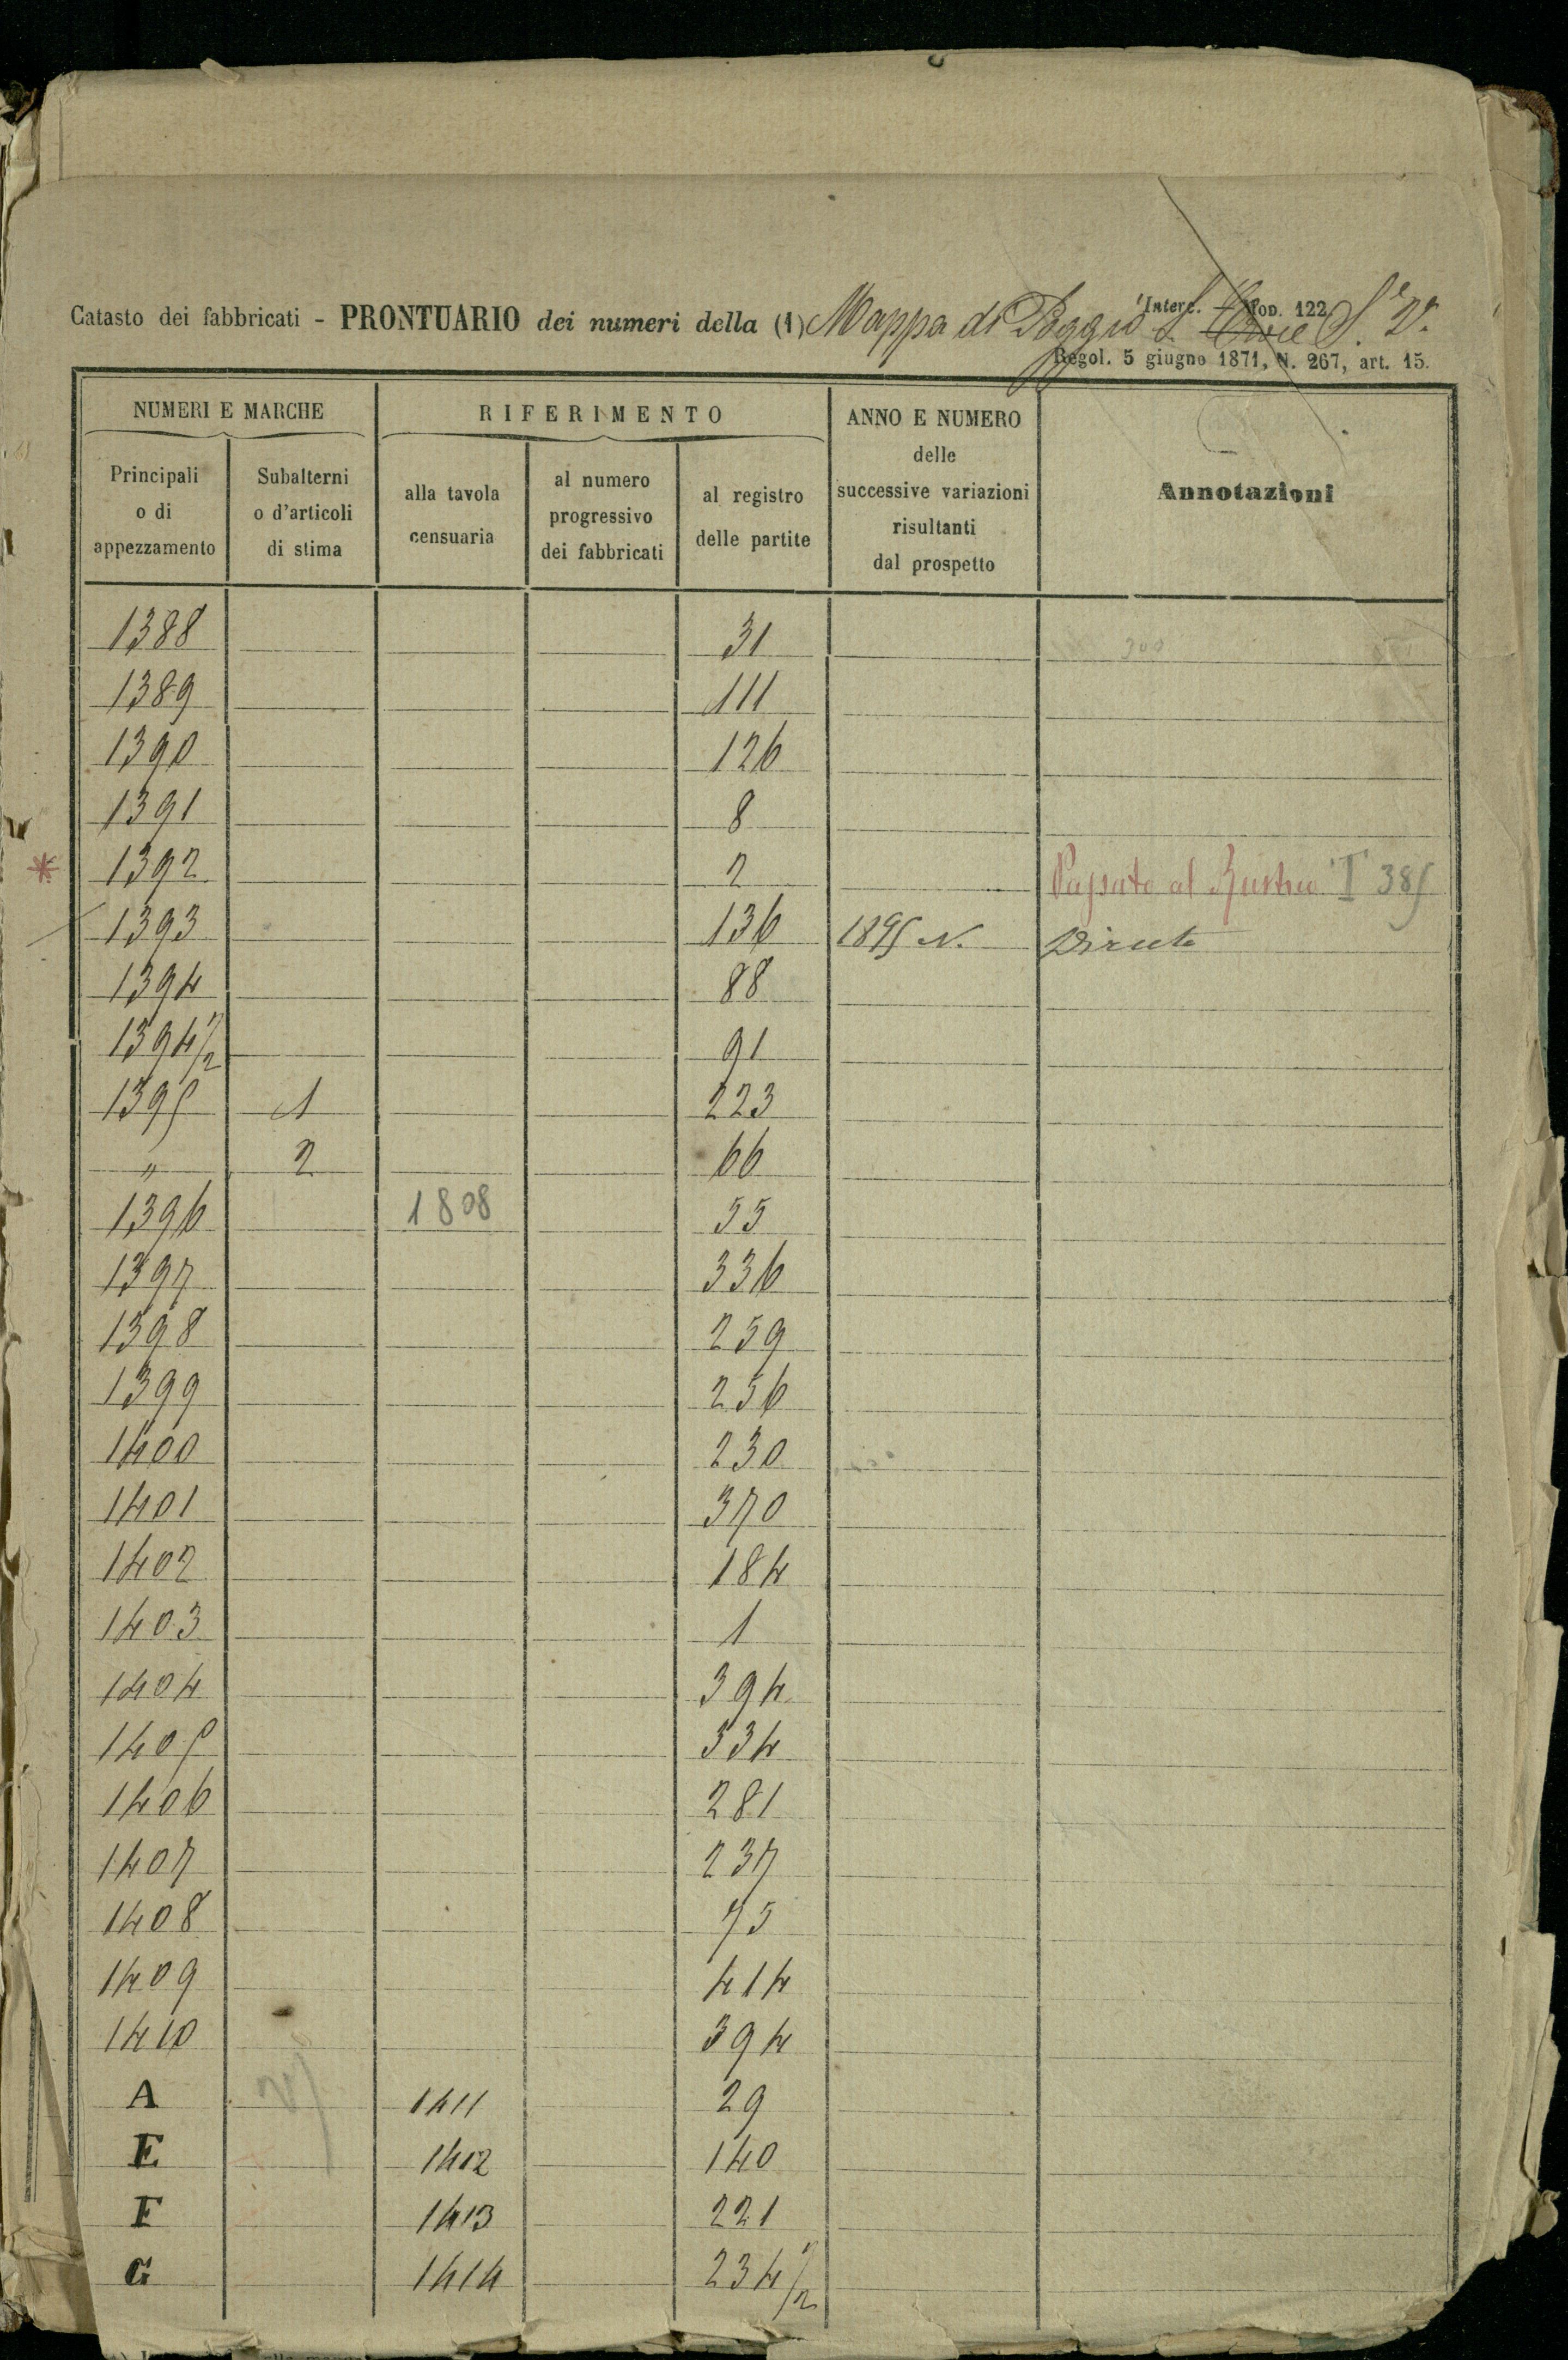 Interc. - Mod. 122
Catasto dei fabbricati - PRONTUARIO dei numeri della (1) Mappa di Poggio S.
Regol. 5 giugno 1871, N. 267, art. 15.
NUMERI E MARCHE RIFERIMENTO ANNO E NUMERO delle successive variazioni risultanti dal prospetto Annotazioni
Principali o di appezzamento Subalterni o d'articoli di stima alla tavola censuaria al numero progressivo dei fabbricati al registro delle partite
1388 31
1389 111
1390 126
1391 8
* 1392 2 Passato al Rustico T 385
1393 136 1895 N. Diruto
1394 88
1394 1/2 91
1395 1 223
" 2 66
1396 1808 55
1397 336
1398 259
1399 256
1400 230
1401 370
1402 184
1403 1
1404 394
1405 334
1406 281
1407 237
1408 75
1409 414
1410 394
A 1411 29
E 1412 140
F 1413 221
G 1414 234 1/2